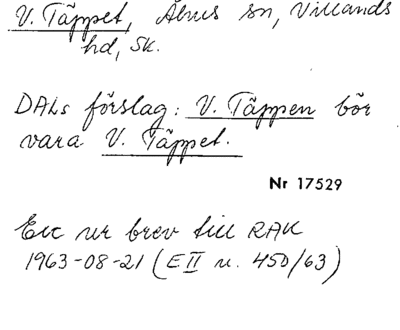 V. Täppet, Åhus sn, Villands
hd, Sk.
DALs förslag: V. Täppen bör
vara V. Täppet.
Nr 17529
Exc ur brev till RAK
1963-08-21 (E II u. 450/63)